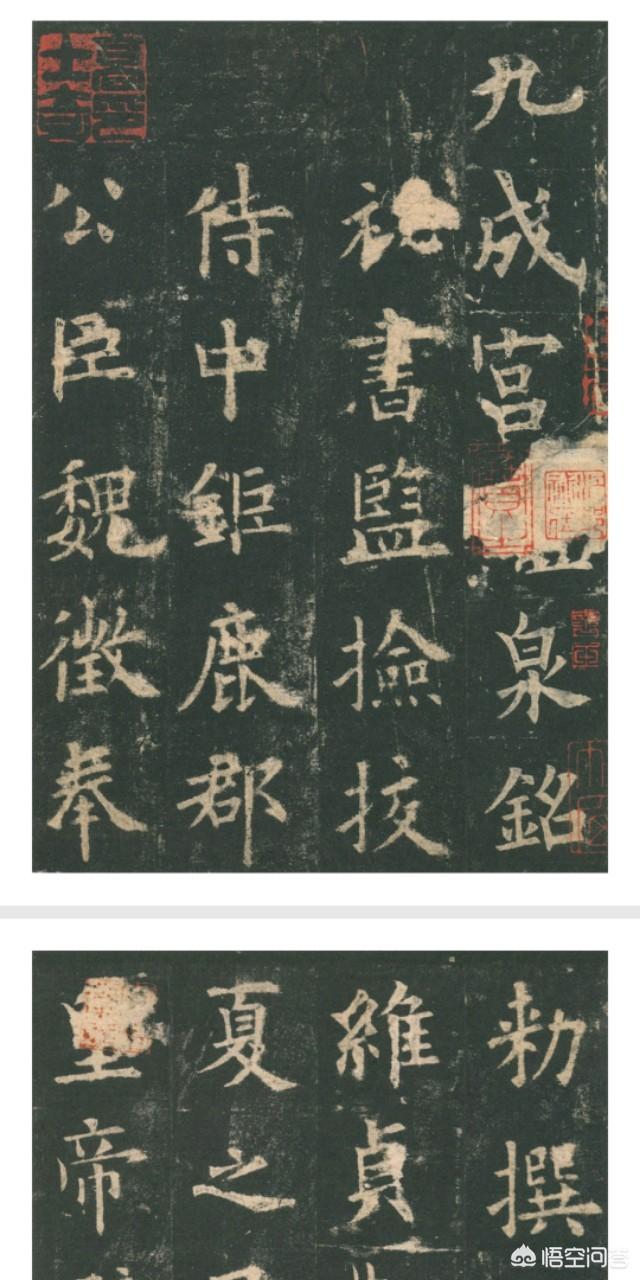 九成宮泉銘
祕書監撿挍
侍中鉅鹿郡
公臣魏徵奉
勑撰
維貞
夏之
帝
悟空问答